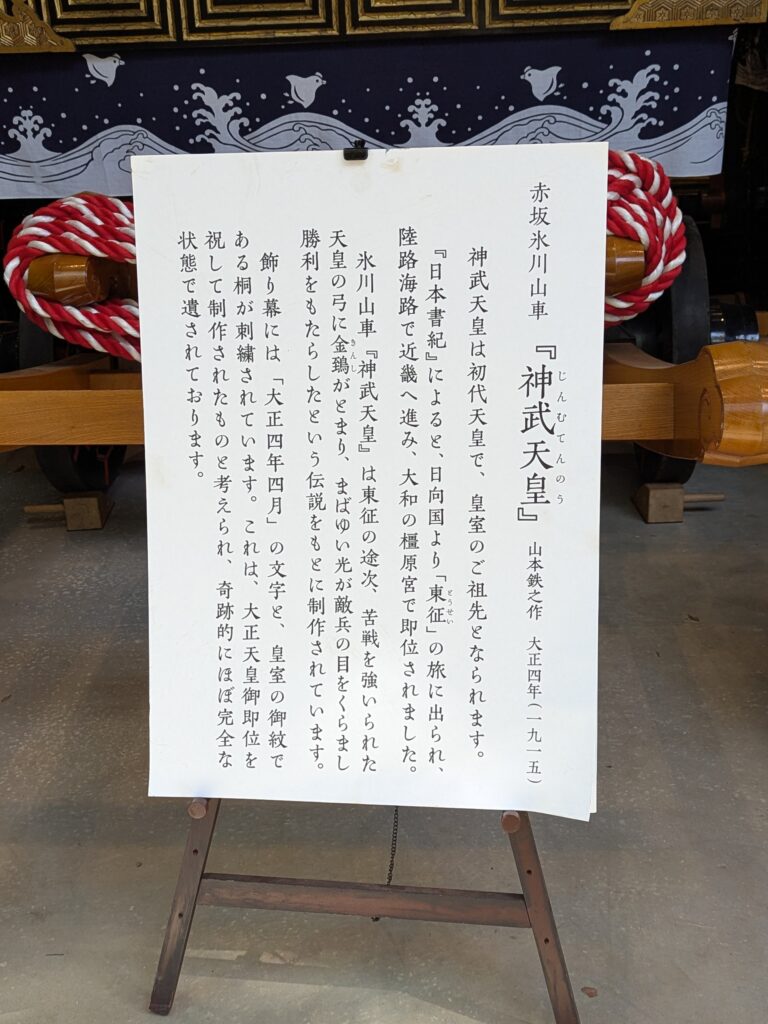 赤坂氷川山車 『神武天皇』 山本鉄之作 大正四年(一九一五)
じんむてんのう
神武天皇は初代天皇で、皇室のご祖先となられます。
『日本書紀』によると、日向国より「東征」の旅に出られ、
とうせい
陸路海路で近畿へ進み、大和の橿原宮で即位されました。
氷川山車『神武天皇』は東征の途次、苦戦を強いられた
天皇の弓に金鵄がとまり、まばゆい光が敵兵の目をくらまし
きんし
勝利をもたらしたという伝説をもとに制作されています。
飾り幕には「大正四年四月」の文字と、皇室の御紋で
ある桐が刺繍されています。これは、大正天皇御即位を
祝して制作されたものと考えられ、奇跡的にほぼ完全な
状態で遺されております。